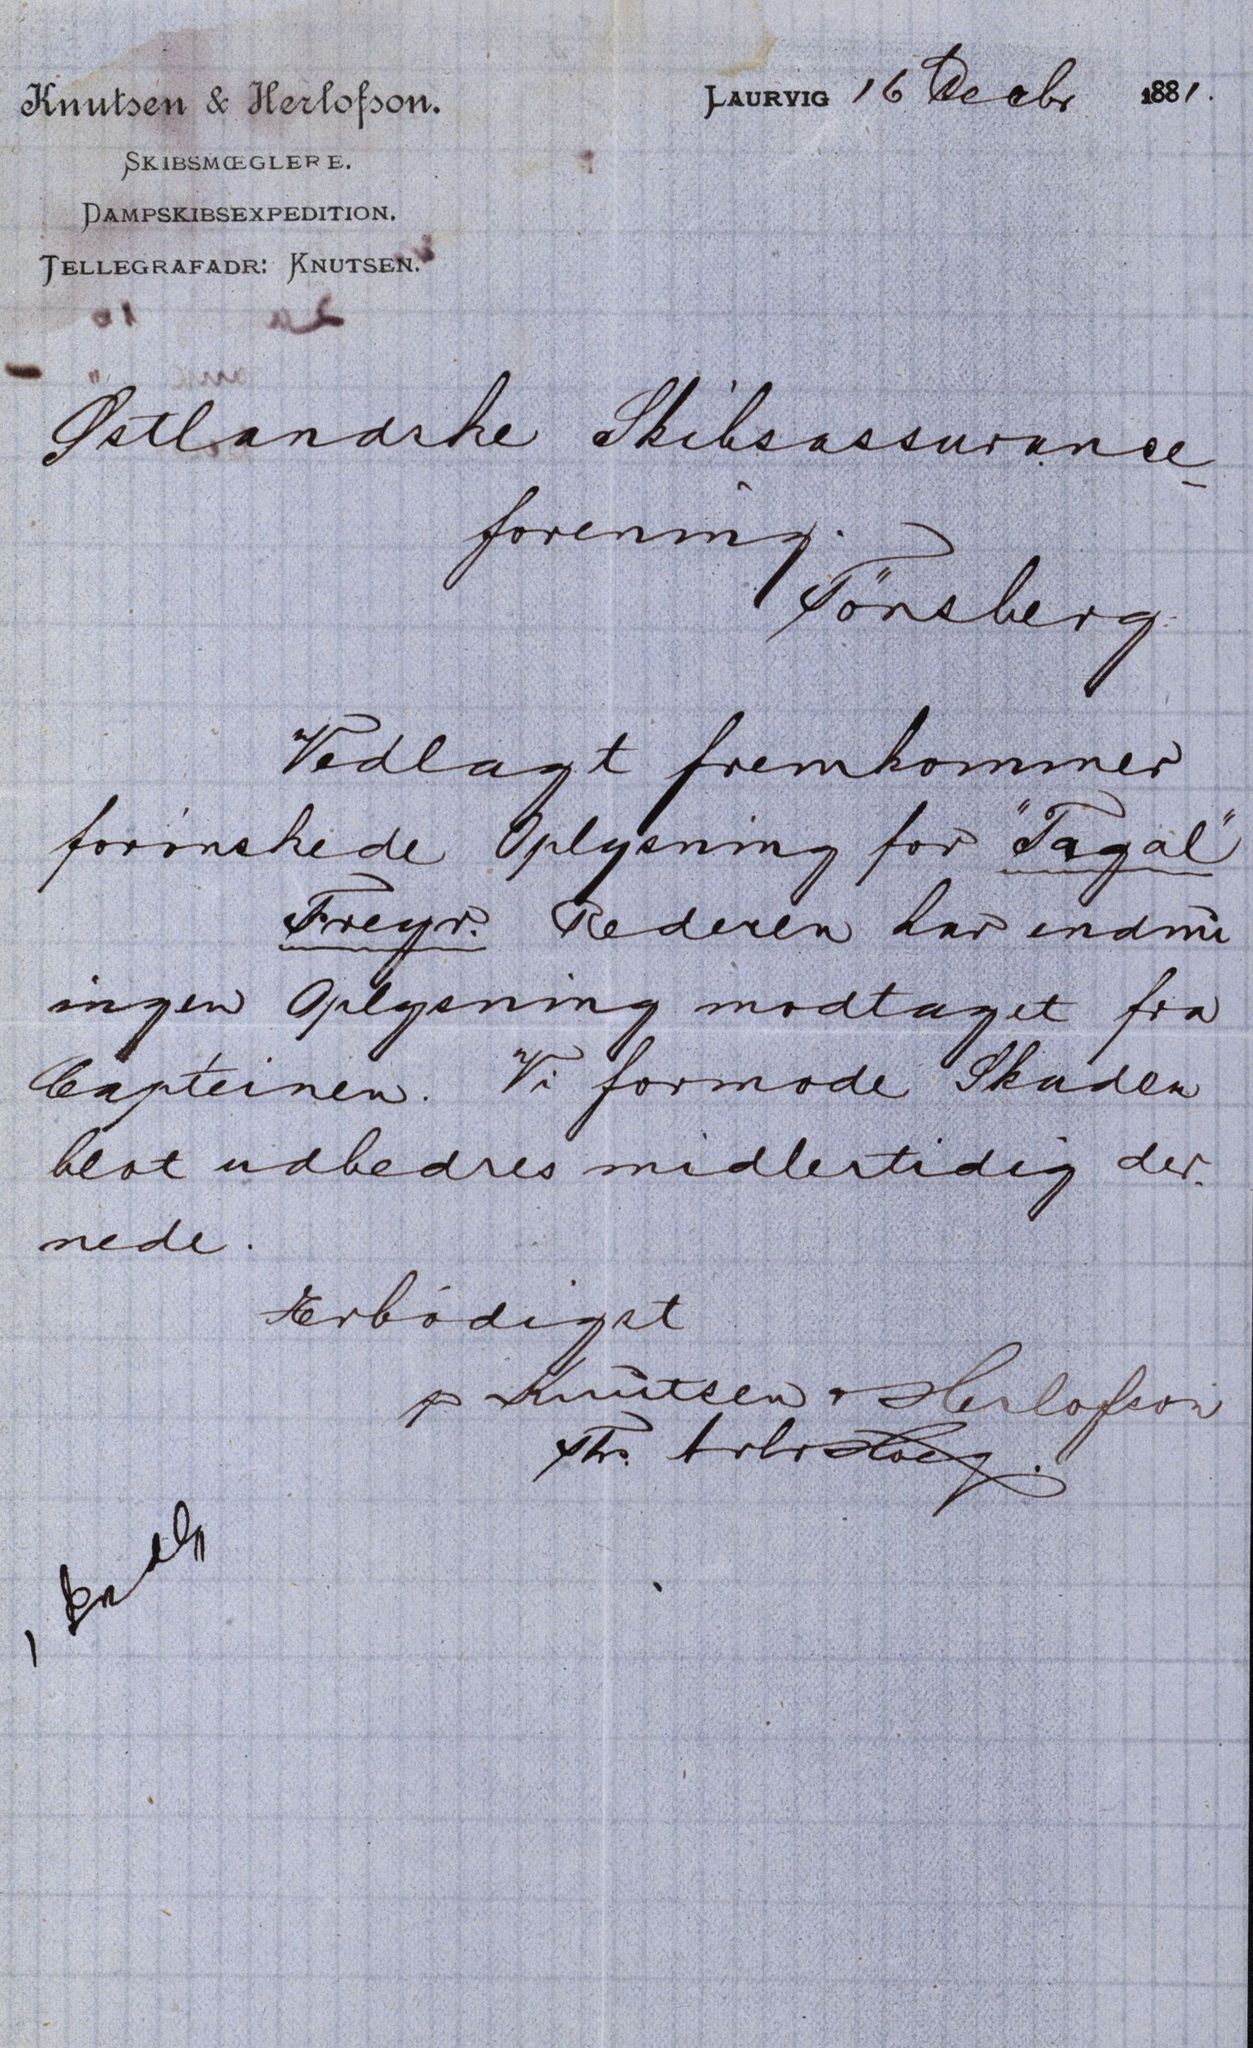 Knutsen & Herlofson.
SKIBSMŒGLERE.
DAMPSKIBSEXPEDITION.
TELLEGRAFADR: KNUTSEN.
LAURVIG 16 Decbr 1881.
Østlandske Skibsassurance
forening.
Tönsberg.
Vedlagt fremkommer
forönskede Oplysning for "Tagal"
Freyr. Rederen har endnu
ingen Oplysning modtaget fra
Capteinen. Vi formode Skaden
blot udbedres midlertidig der
nede.
Ærbödigst
p Knutsen & Herlofson